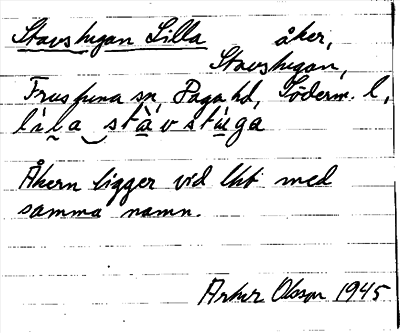 Stavstugan Lilla åker,
Stavstugan,
Frustuna sn, Daga hd, Söderm. l,
lìla stàvstùga
Åkern ligger vid lht med
samma namn.
Artur Olsson 1945